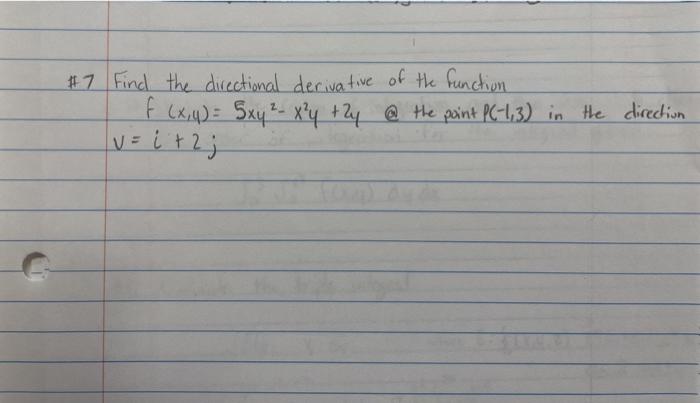 #7 Find the directional derivative of the function
f (x,y) = 5xy² - x²y + 2y @ the point P(-1,3) in the direction
v = i + 2j